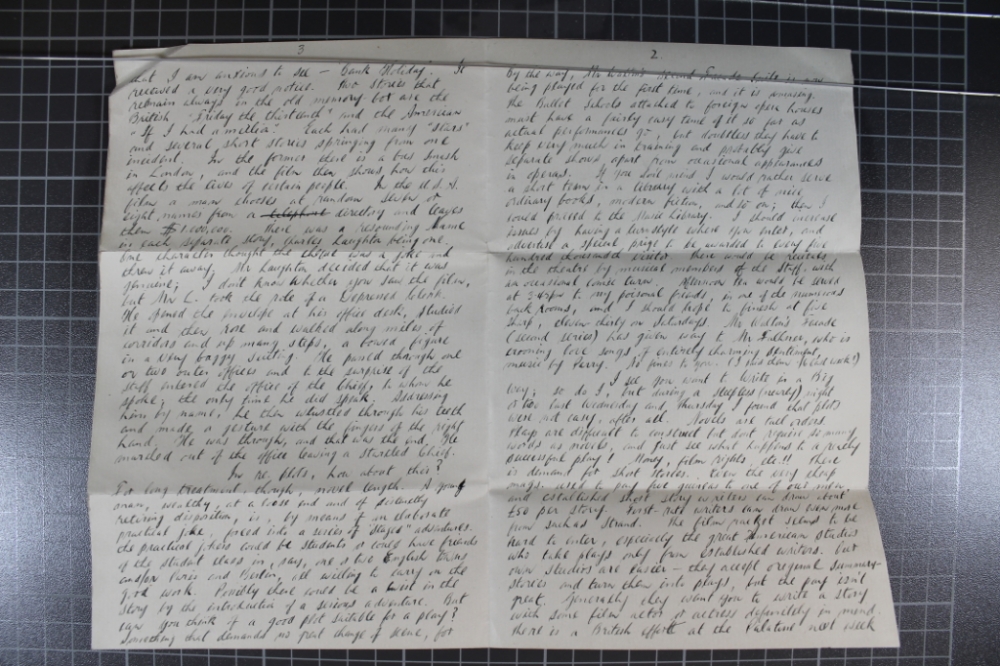 2.
By the way, Mr Walton's second Facade Suite is now
being played for the first time, and it is amusing.
the Ballet Schools attached to foreign opera houses
must have a fairly easy time of it so far as
actual performances go, but doubtless they have to
keep very much in training and probably give
separate shows apart from occasional appearances
in operas. If you don't mind I would rather serve
a short term in a library with a lot of nice
ordinary books, modern fiction, and so on; then I
could proceed to the Music Library. I should increase
issues by having a turnstyle where you enter, and
advertise a special prize to be awarded to every five
hundred thousandth visitor. there would be recitals
in the theatre by musical members of the staff, with
an occasional comic turn. Afternoon tea would be served
at 3.45pm to my personal friends, in one of the numerous
back rooms, and I should hope to finish at five
sharp, eleven thirty on Saturdays. Mr Walton's Facade
(second series) has given way to Mr who is
crooning love songs, if entirely charming sentiment,
music by Parry. As given to you. (Is this how to work?)
I see you want to write in a Big
Way; so do I, but during a sleepless (nearly) night
or two last Wednesday and Thursday I found that plots
were not easy, after all. Novels are tall orders.
Plays are difficult to construct but don't require so many
words as novels, and just see what happens to a really
successful play! Money, film rights, etc!! there
is demand for short stories. Even the very cheap
mags. used to pay five guineas to one of our men,
and established short story writers can draw about
£50 per story. First-rate writers can draw even more
from such as Strand. The film racket seems to be
hard to enter, especially the great American studios
who take plays only from established writers. but
our studios are easier – they accept original summary-
stories and turn them into plays, but the pay isn't
great. Generally they want you to write a story
with some film actor or actress definitely in mind.
there is a British effort at the Palatine next week
3
that I am anxious to see – "Bank Holiday". It
received a very good notice. Two stories that
remain always in the old memory box are the
British "Friday the thirteenth" and the American
"If I had a million". Each had many "stars"
and several short stories springing from one
incident. In the former there is a bus smash
in London, and the film then shows how this
affects the lives of certain people. In the U.S.A.
film a man chooses at random seven or
eight names from a telephone directory and leaves
them $1,000,000. There was a resounding Name
in each separate story, Charles Laughton being one.
One character thought the cheque was a joke and
threw it away; Mr Laughton decided that it was
genuine; I don't know whether you saw the film,
but Mr L. took the role of a Depressed Clerk.
He opened the envelope at his office desk, studied
it and then rose and walked along miles of
corridors and up many steps, a bowed figure
in a very baggy suiting. He passed through one
or two outer offices and to the surprise of the
staff entered the office of the Chief, to whom he
spoke; the only time he did speak. Addressing
him by name, he then whistled through his teeth
and made a gesture with the fingers of the right
hand, He was through, and that was the end, He
marched out of the office leaving a startled Chief.
In re plots, how about this?
For long treatment, though, novel length. A young
man, wealthy, at a loose end and of distinctly
retiring disposition, is, by means to an elaborate
practical joke, forced into a series of "staged" adventures.
the practical jokers could be students or could have friends
of the student class in, say, one or two English towns
and/or Paris and Berlin, all willing to carry on the
good work. Possibly there could be a twist in the
story by the introduction of a serious adventure. But
can you think of a good plot suitable for a play?
Something that demands no great change of scene, for